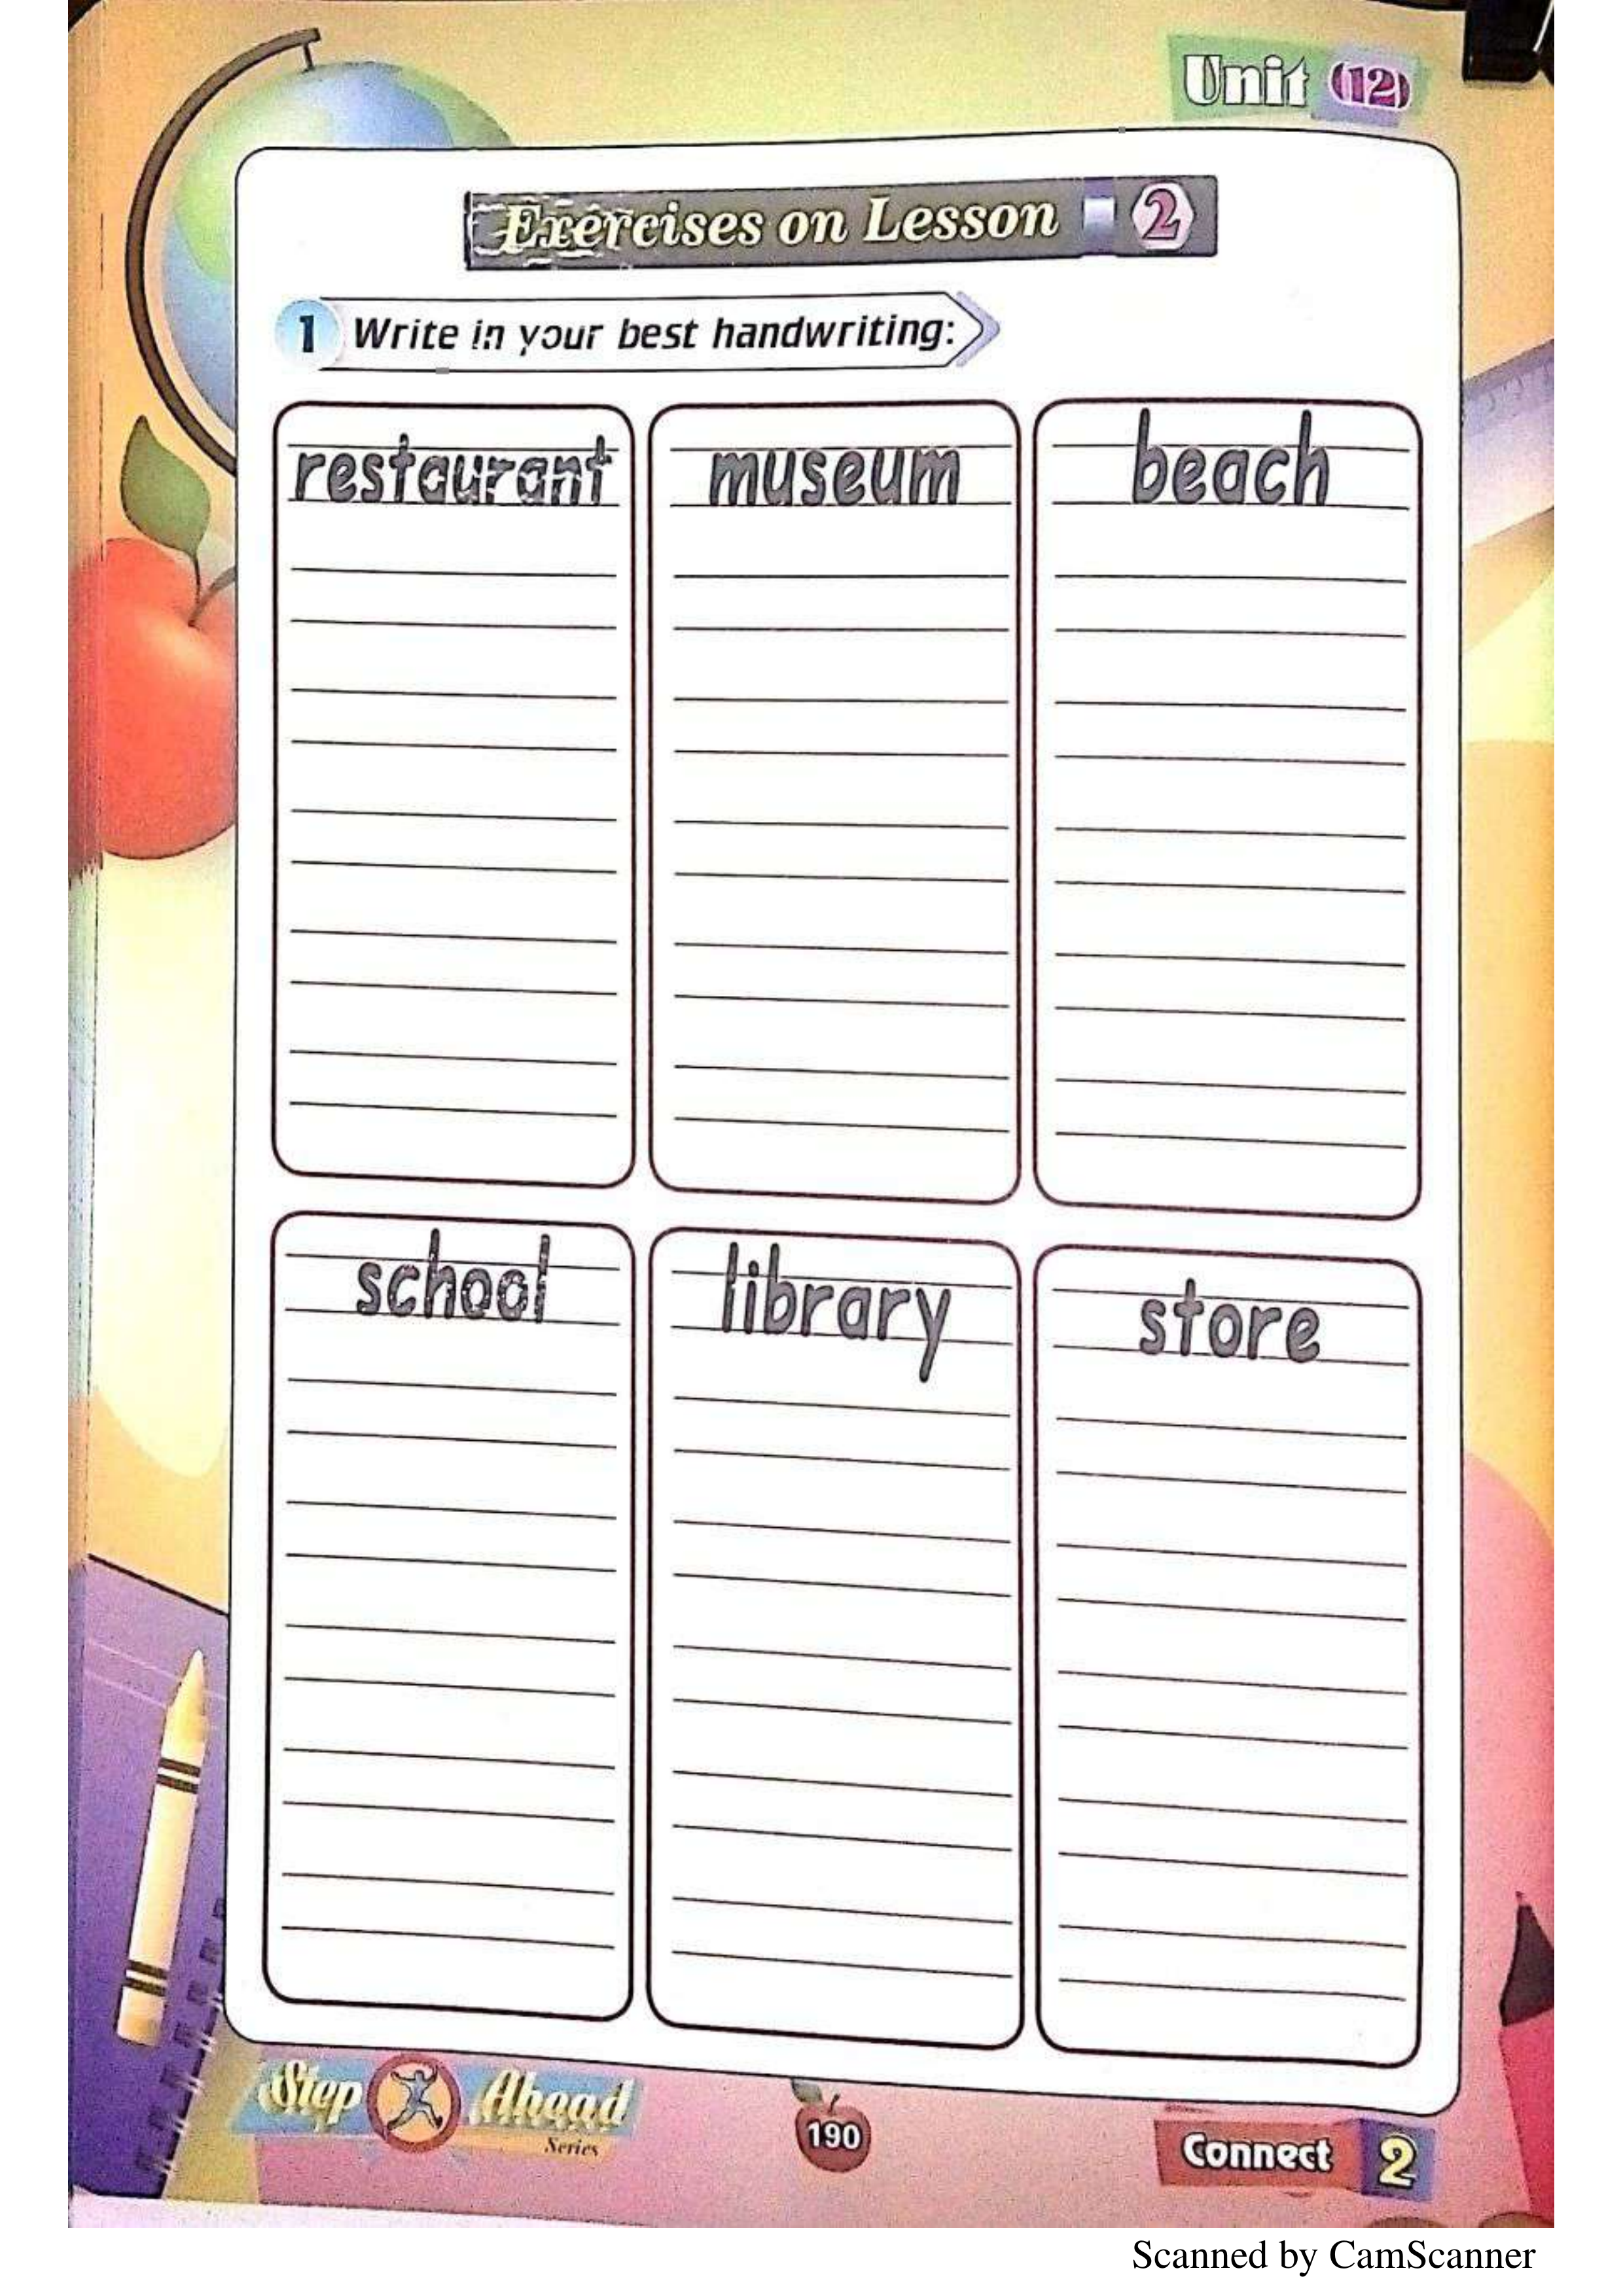 Unit (12)
Exercises on Lesson 2
1 Write in your best handwriting:
restaurant museum beach
school library store
Step Ahead
Series
190
Connect 2
Scanned by CamScanner